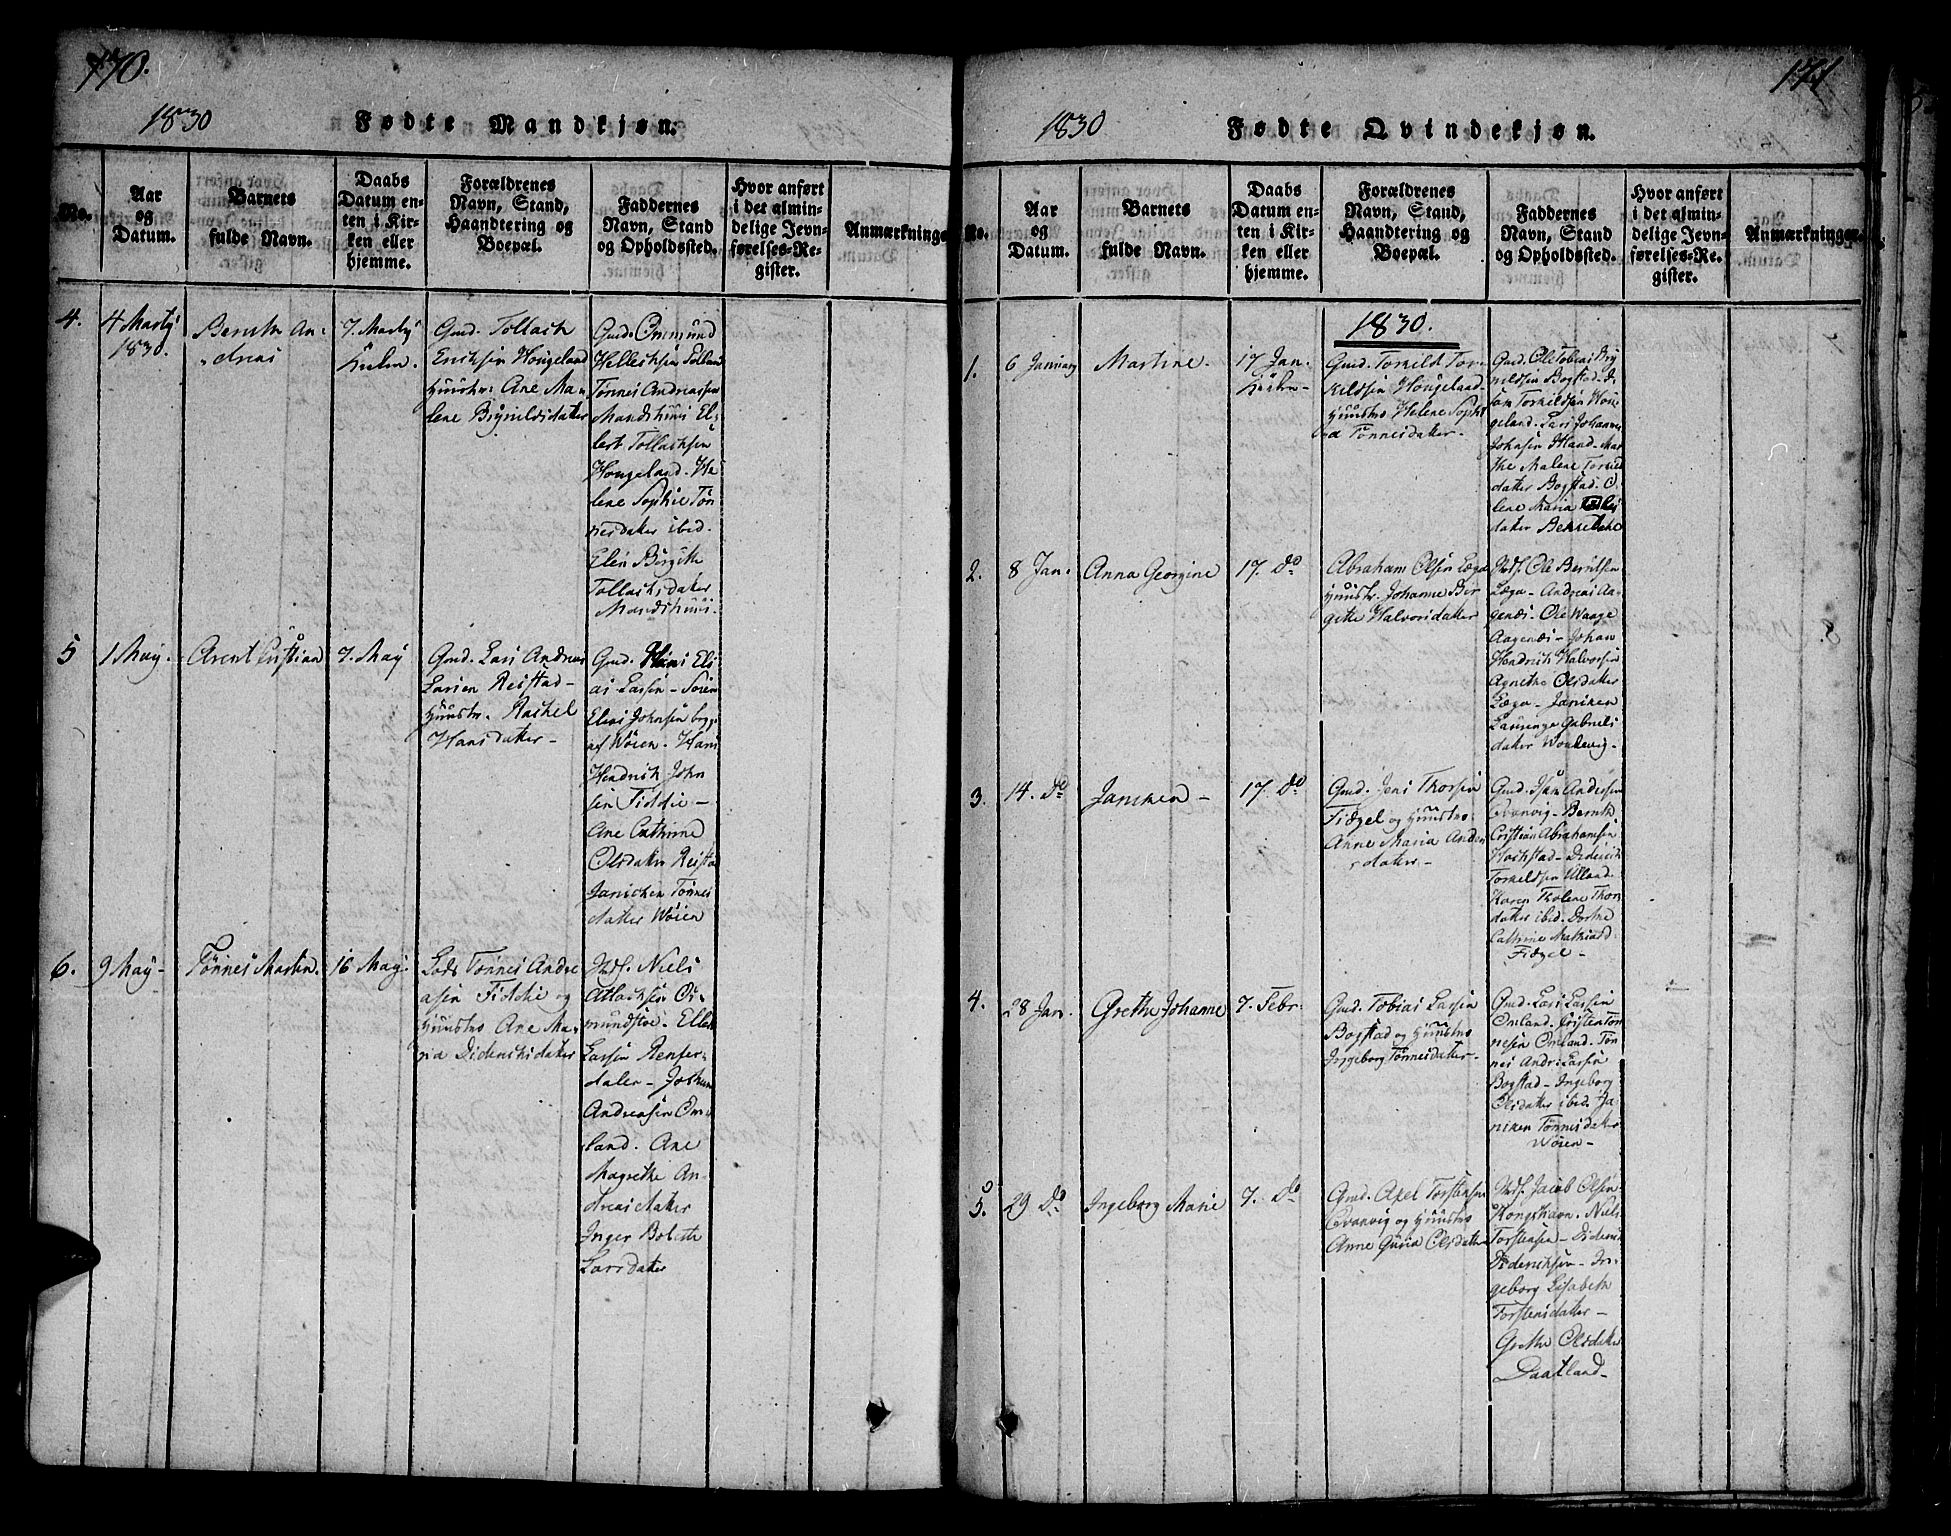 170.
1830 Fødte Mandkjøn.
No.
Aar
og
Datum.
Barnets
fulde Navn.
Daabs
Datum en-
ten i Kir-
ken eller
hjemme.
Forældrenes
Navn, Stand,
Haandtering og
Boepæl.
Faddernes
Navn, Stand
og Opholdssted.
Hvor anført
i det almin-
delige Jevn-
førelses-Re-
gister.
Anmærkninger
4.
4 Martj
1830.
Bernth An-
dreas
7. Martj
Gmd. Tollach
Ericksen Hougeland
Huustr: Ane Ma-
lene Brynildsdatter
Gmd. Ommund
Tønnes Andreassen
Mandshuus El-
lert Tollachsen
Hougeland. He-
lene Sophie Tøn-
nesdatter ibid.
Elen Birgitte
Tollachsdatter
Mandshuus.
5
1 May.
Arent Cristian
7. May
Gmd. Lars Andreas
Larsen Reistad-
Huustr. Rachel
Hansdatter-
Gmd. Hans Eli
as Larsen - Søren
Elias Johnsen
af Wøien. Hans
Hendrich John
sen Fidde -
Ane Cathrine
Olsdatter Reistad
Janichen Tønnes
datter Wøien
6.
9 May-
Tønnes Martin.
16 May.
Lods Tønnes Andre
asen Fidde og
Huustro Ane Ma-
ria Diderichsdatter
Niels
Atlachsen Os-
mundstøe. Ellert
Larsen Rensfer-
daler - Jochum
Andreasen Om-
land. Ane
Magrethe An-
dreasdatter
Inger Bolette
Larsdatter
171
1830 Fødte Qvindekjøn.
No.
Aar
og
Datum.
Barnets
fulde Navn.
Daabs
Datum en-
ten i Kir-
ken eller
hjemme.
Forældrenes
Navn, Stand,
Haandtering og
Boepæl.
Faddernes
Navn, Stand
og Opholdssted.
Hvor anført
i det almin-
delige Jevn-
førelses-Re-
gister.
Anmærkninger.
1830.
1.
6 January
Martine
17 Jan.
Gmd. Torkild Tor-
kildsen Hougeland-
Huustro Helene Sophi
a Tønnesdatter-
Gmd. Ole Tobias Bry
nildsen Bogstad-
Torkildsen Hou-
geland. Lars Johannes
Johnsen Haand-
the Malene Torkild
datter Bogstad. O-
lene Maria
datter
2.
8 Jan.
Anna Georgine
17. do
Abraham Olsen Læga
Huustr. Johanne Bir
gitte Halvorsdatter
Ole Berntsen
Læga - Andreas Aa-
genæs - Ole Waage
Aagenæs - Johan
Hendrich Halvorsen
Agnethe Olsdatter
Læga - Janiken
Laurenze Gabriels
datter
3.
14. Do
Janiken -
17. do
Gmd. Jens Thorsen
Fidgel og Huustro
Anne Maria Anders
datter -
Gmd. Isak Andersen
Qvanvig - Bernth
Cristian Abrahamsen
Hochstad - Diderich
Torkildsen Ulland.
Karen Tholene Thors
datter ibid. Dorthe
Cathrine Mathiasd
Fidgel -
4.
28 Jan.
Grethe Johanne
7. Febr.
Gmd. Tobias Larsen
Bogstad og Huustro
Ingeborg Tønnesdatter-
Gmd. Lars Larsen
Omland. Cristen Tøn
nesen Omland. Tøn
nes Andr: Larsen
Bogstad - Ingeborg
Olsdatter ibid. Ja-
niken Tønnesdatter
Wøien -
5.
29 Do
Ingeborg Marie
7. do
Gmd. Axel Torstensen
Qvanvig og Huustro
Anne Guria Olsdatter
Jacob Olsen
Kongshavn. Niels
Torstensen - Diderich
Dideriksen - In-
geborg Lisabeth
Torstensdatter -
Grethe Olsdatter
Daatland -